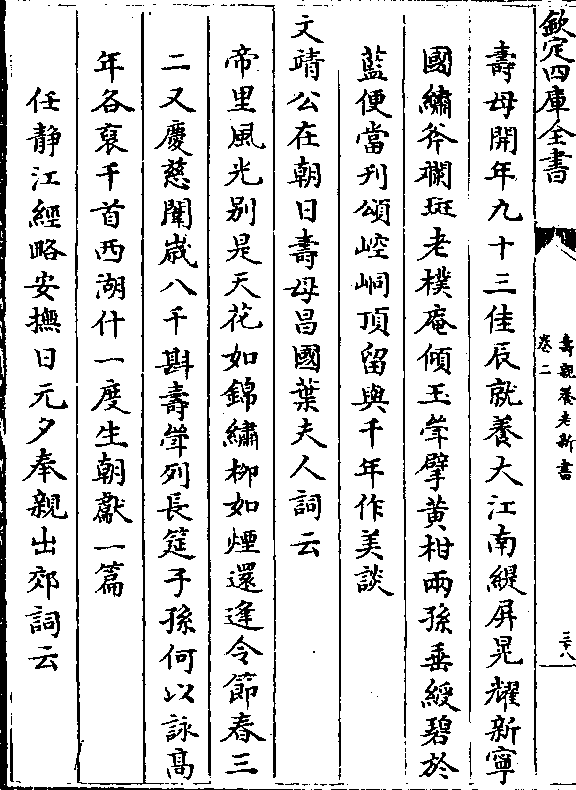 欽定四庫全書
壽親養老新書
卷二
三十八
壽母開年九十三佳辰就養大江南緹屏晃耀新寧
國繡斧斕斑老樸庵傾玉斝擘黄柑兩孫垂綬碧於
藍便當刋頌崆峒頂留與千年作美談
文靖公在朝日壽母昌國葉夫人詞云
帝里風光别是天花如錦繡栁如煙還逢令節春三
二又慶慈闈嵗八千斟壽斝列長筵子孫何以詠髙
年各裒千首西湖什一度生朝獻一篇
任静江經略安撫日元夕奉親出郊詞云